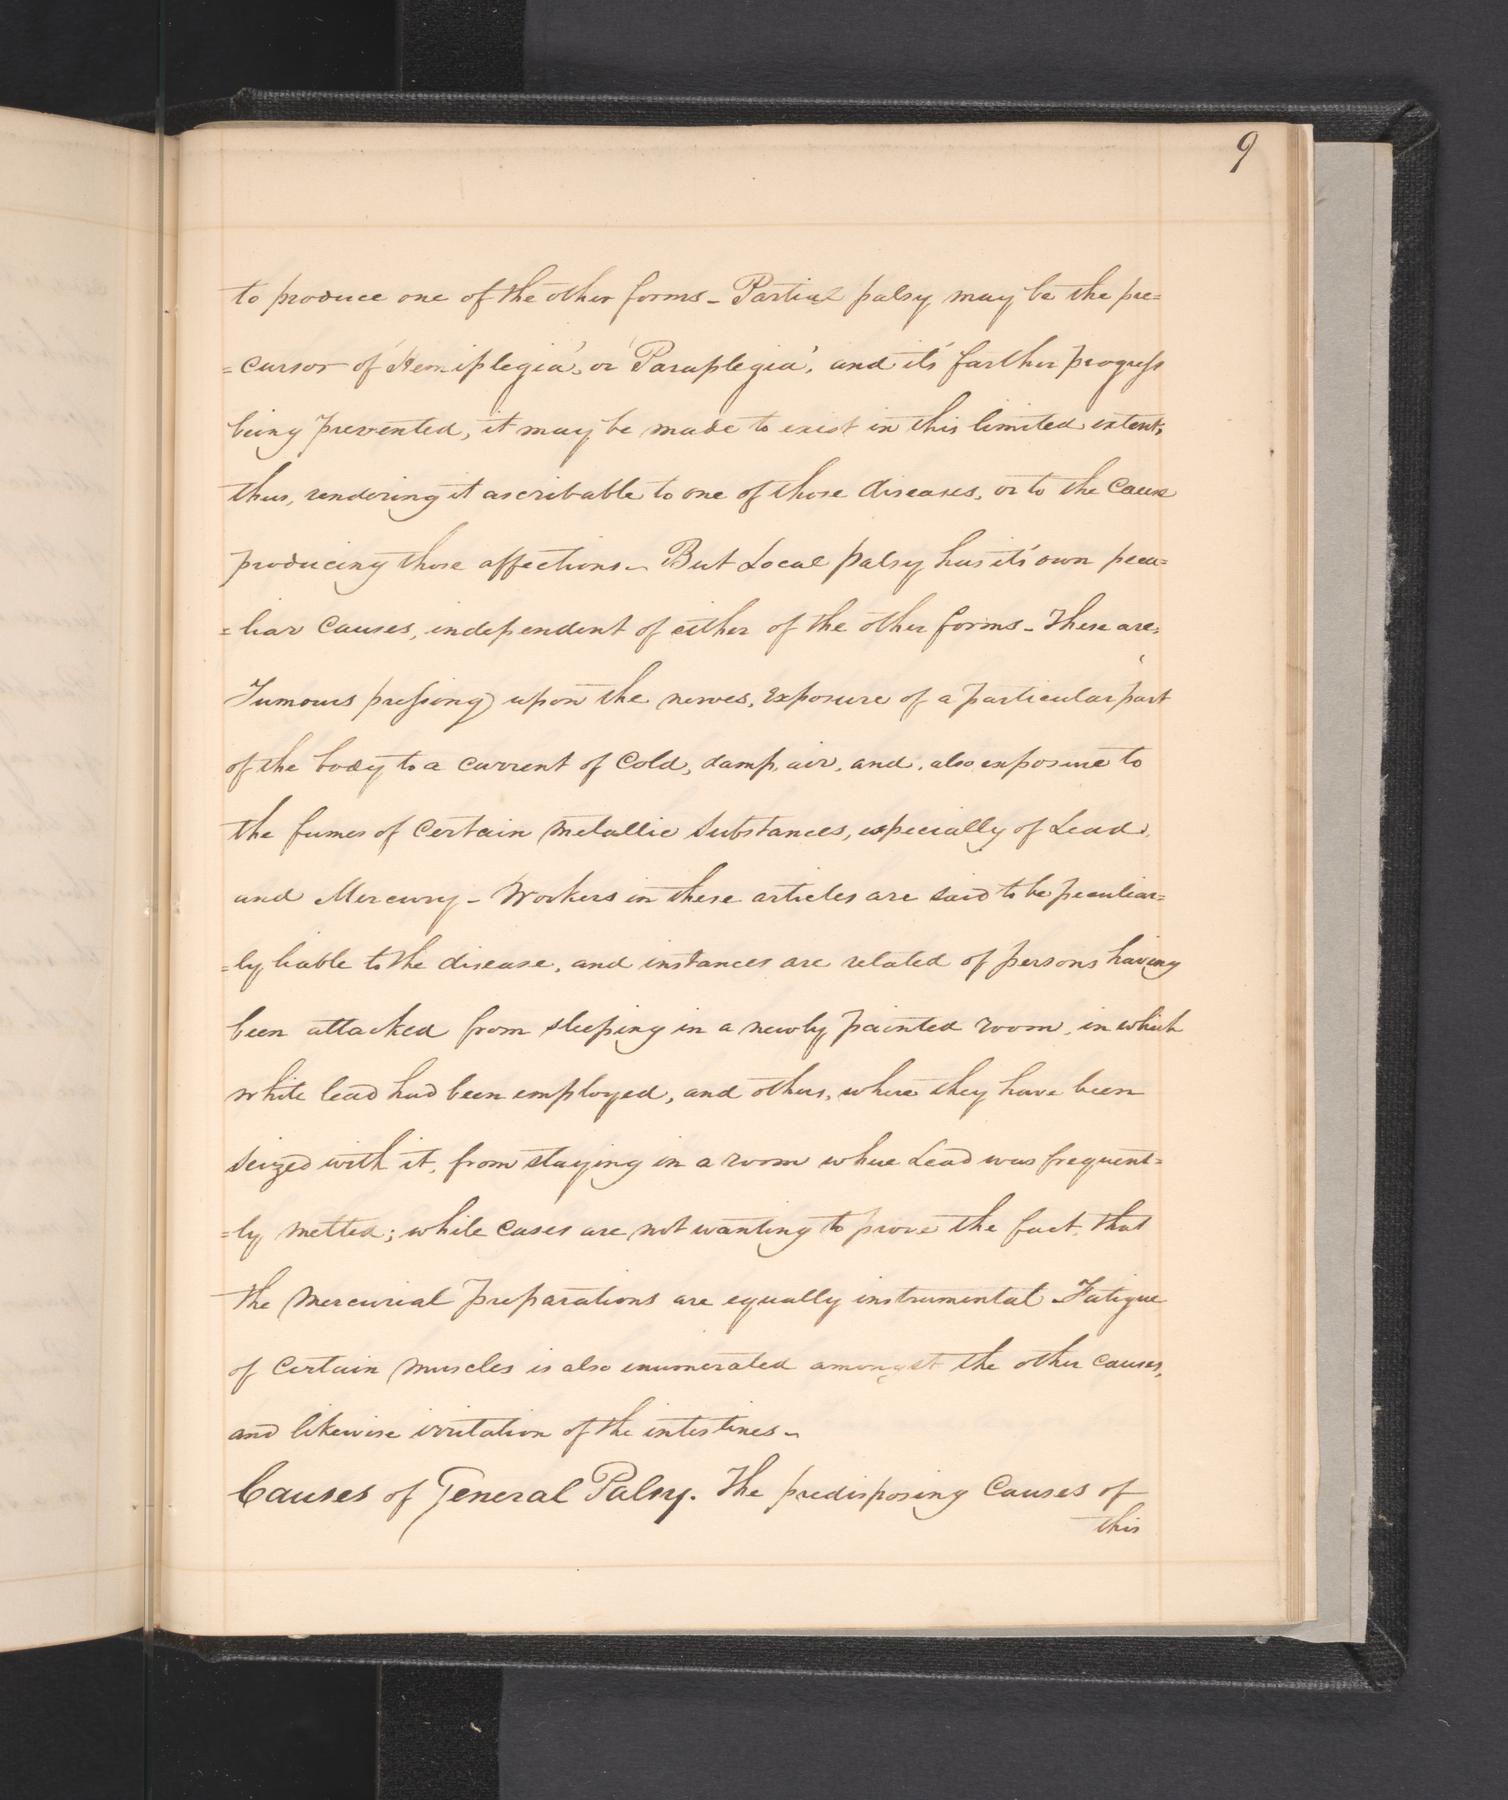 9
to produce one of the other forms - Partial palsy may be the pre=
=cursor of 'Hemiplegia', or 'Paraplegia', and it's farther progress
being prevented, it may be made to exist in this limited extent,
thus, rendering it ascribable to one of those diseases, or to the Cause
producing those affections - But Local palsy has it's own pecu=
=liar Causes, independent of either of the other forms - These are,
Tumours pressing upon the nerves, Exposure of a particular part
of the body to a current of Cold, damp, air, and, also exposure to
the fumes of Certain Metallic Substances, especially of Lead,
and Mercury - Workers in these articles are said to be peculiar=
=ly liable to the disease, and instances are related of persons having
been attacked from sleeping in a newly painted room, in which
white lead had been employed, and others, where they have been
Seized with it, from staying in a room where Lead was frequent=
=ly melted; while Cases are not wanting to prove the fact, that
the Mercurial Preparations are equally instrumental Fatigue
of Certain Muscles is also enumerated amongst the other Causes,
and likewise irritation of the intestines -
Causes of General Palsy. The predisposing Causes of
this